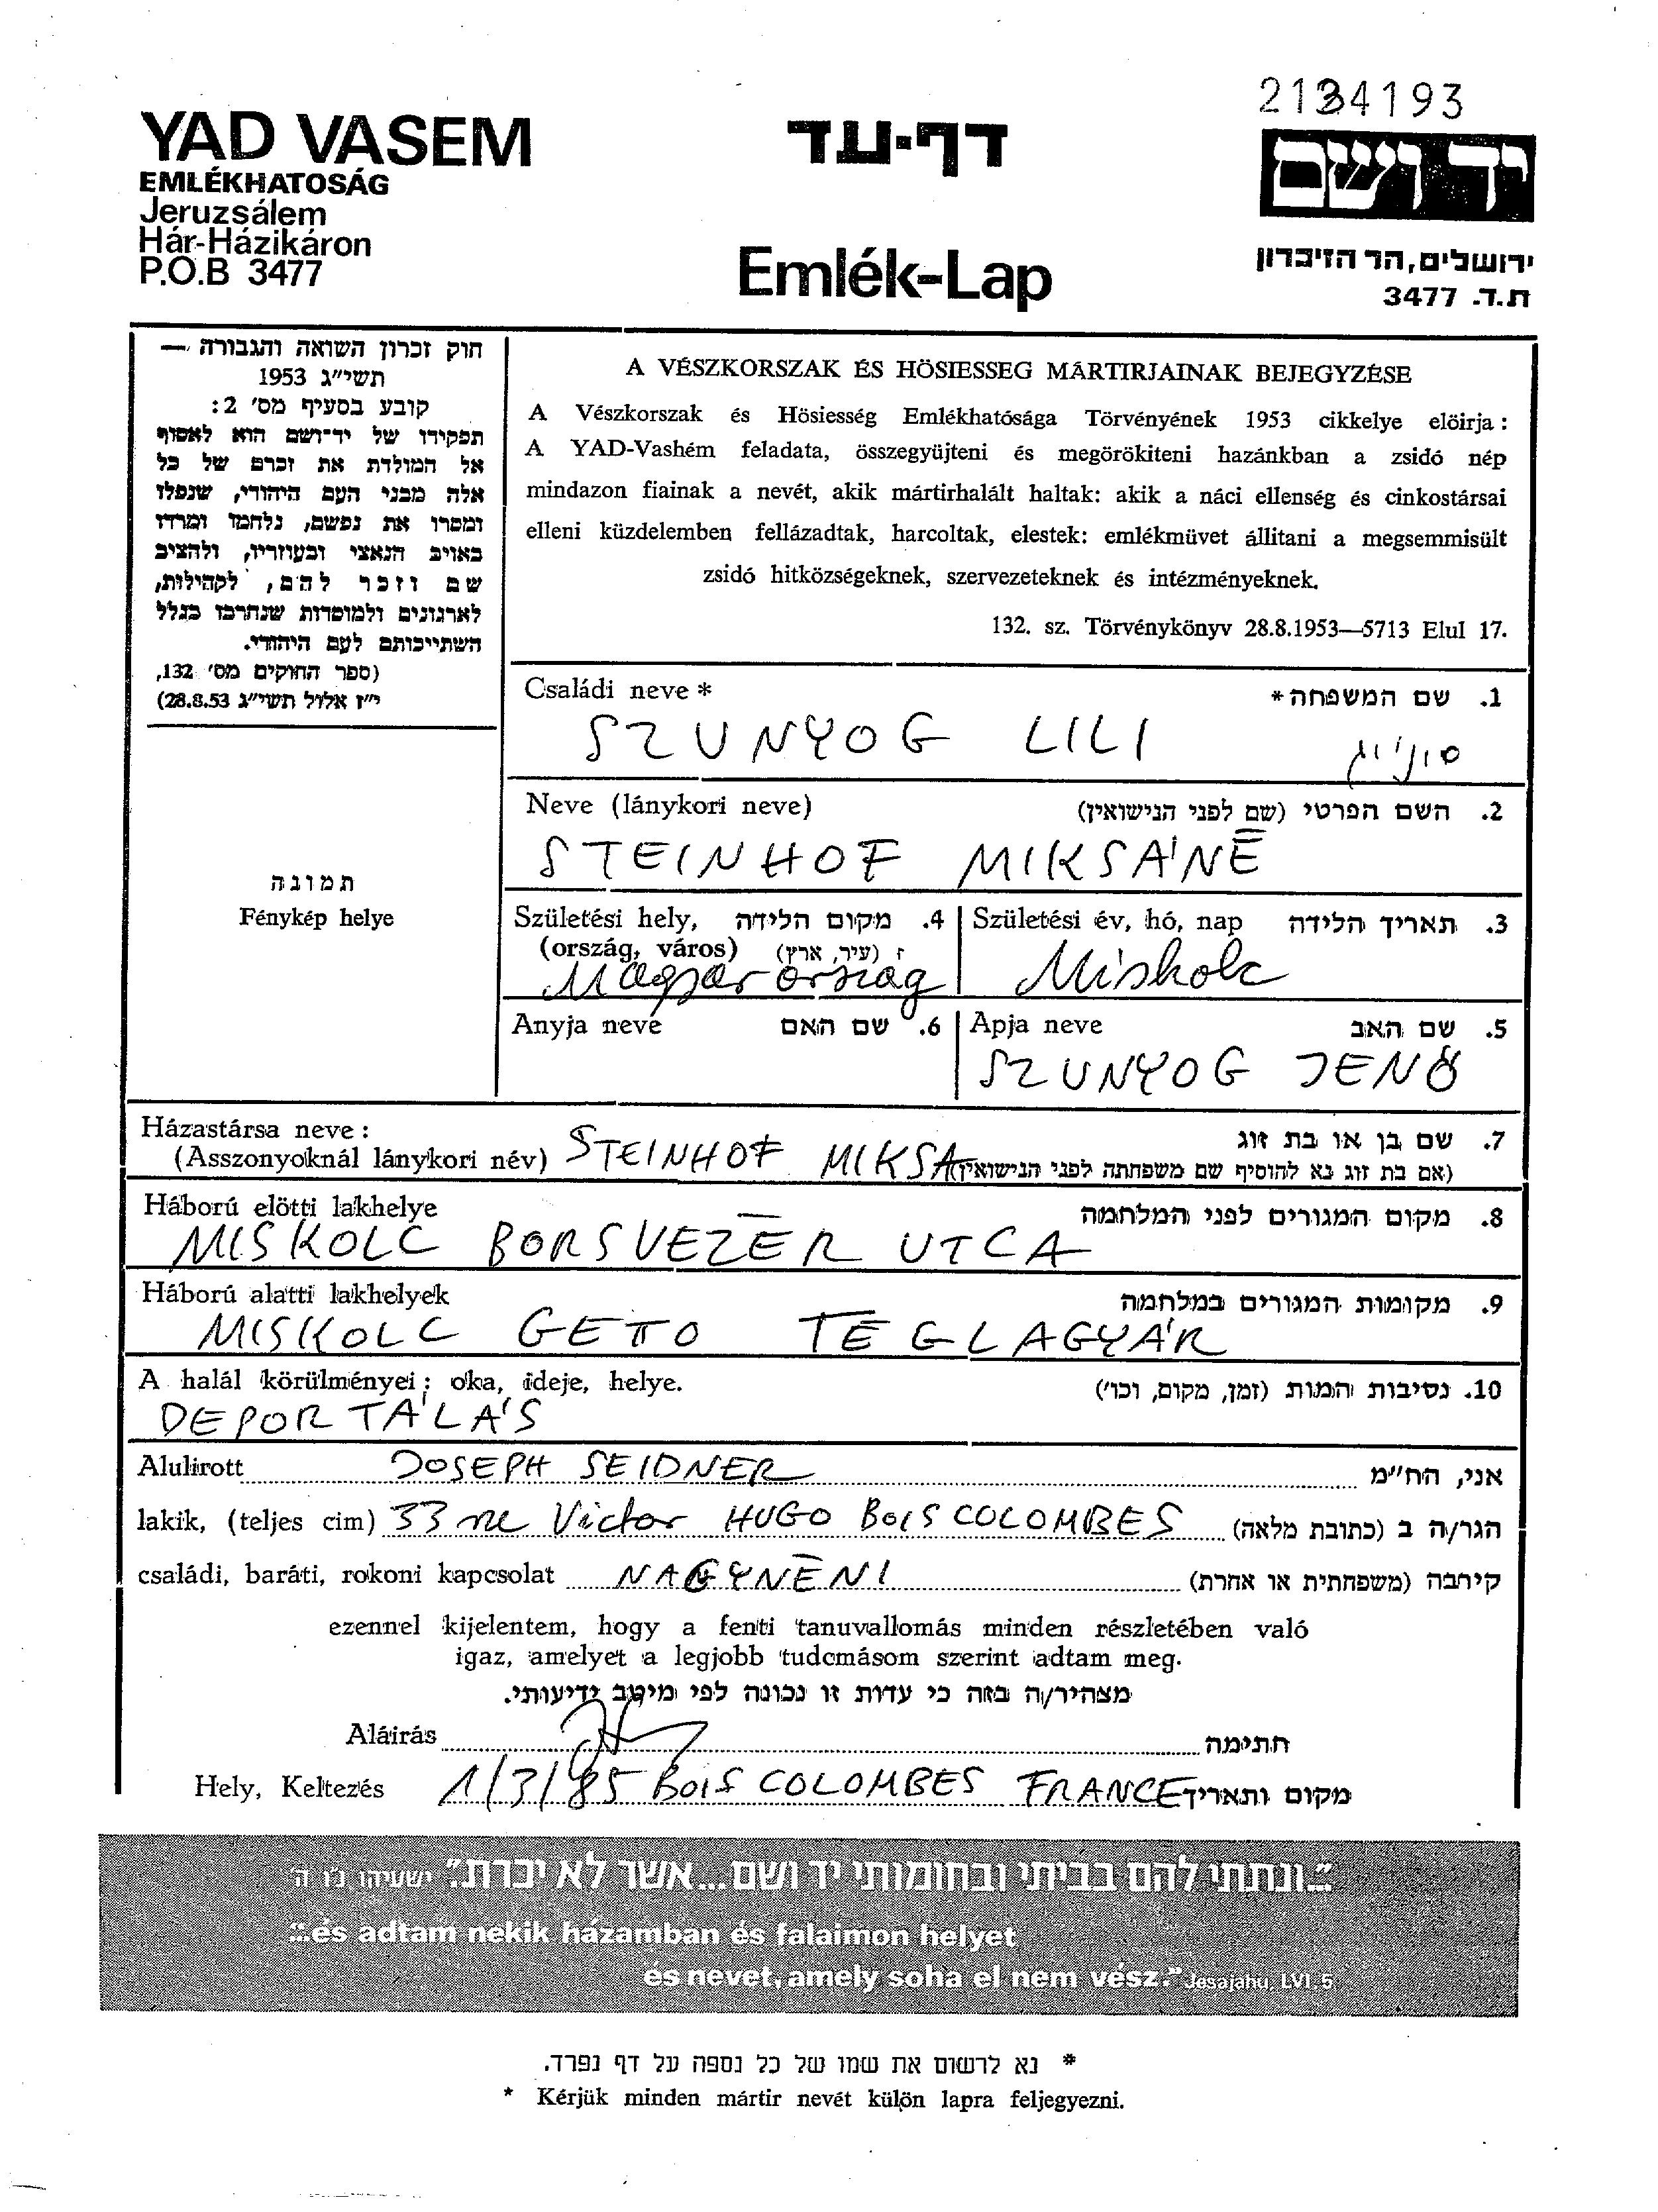 2134193
YAD VASEM
EMLÉKHATOSÁG
Jeruzsálem
Hár-Házikáron
P.O.B 3477
דף-עד
Emlék-Lap
יד ושם
ירושלים, הר הזיכרון
ת.ד. 3477
חוק זכרון השואה והגבורה —
תשי״ג 1953
קובע בסעיף מס׳ 2:
תפקידו של יד־ושם הוא לאסוף
אל המולדת את זכרם של כל
אלה מבני העם היהודי, שנפלו
ומסרו את נפשם, נלחמו ומרדו
באויב הנאצי ובעוזריו, ולהציב
שם וזכר להם, לקהילות,
לארגונים ולמוסדות שנחרבו בגלל
השתייכותם לעם היהודי.
(ספר החוקים מס׳ 132,
י״ז אלול תשי״ג 28.8.53)
תמונה
Fénykép helye
A VÉSZKORSZAK ÉS HÖSIESSEG MÁRTIRJAINAK BEJEGYZÉSE
A Vészkorszak és Hösiesség Emlékhatósága Törvényének 1953 cikkelye elöirja :
A YAD-Vashém feladata, összegyüjteni és megörökiteni hazánkban a zsidó nép
mindazon fiainak a nevét, akik mártirhalált haltak: akik a náci ellenség és cinkostársai
elleni küzdelemben fellázadtak, harcoltak, elestek: emlékmüvet állitani a megsemmisült
zsidó hitközségeknek, szervezeteknek és intézményeknek.
132. sz. Törvénykönyv 28.8.1953—5713 Elul 17.
Családi neve * 1. שם המשפחה*
SZUNYOG LILI סוניוג
Neve (lánykori neve) 2. השם הפרטי (שם לפני הנישואין)
STEINHOF MIKSÁNÉ
Születési hely, 4. מקום הלידה
(ország, város) (עיר, ארץ)
Magyarorszag
Születési év, hó, nap 3. תאריך הלידה
Miskolc
Anyja neve 6. שם האם
Apja neve 5. שם האב
SZUNYOG JENŐ
Házastársa neve : 7. שם בן או בת זוג
(Asszonyoknál lánykori név) STEINHOF MIKSA (אם בת זוג נא להוסיף שם משפחתה לפני הנישואין)
Háború elötti lakhelye 8. מקום המגורים לפני המלחמה
MISKOLC BORSVEZÉR UTCA
Háború alatti lakhelyek 9. מקומות המגורים במלחמה
MISKOLC GETTO TÉGLAGYÁR
A halál körülményei ; oka, ideje, helye. 10. נסיבות המות (זמן, מקום, וכו׳)
DEPORTÁLÁS
Alulirott JOSEPH SEIDNER אני, הח״מ
lakik, (teljes cim) 33 rue Victor HUGO BOIS COLOMBES הגר/ה ב (כתובת מלאה)
családi, baráti, rokoni kapcsolat NAGYNÉNI קירבה (משפחתית או אחרת)
ezennel kijelentem, hogy a fenti tanuvallomás minden részletében való
igaz, amelyet a legjobb tudomásom szerint adtam meg.
מצהיר/ה בזה כי עדות זו נכונה לפי מיטב ידיעותי.
Aláirás חתימה
Hely, Keltezés 1/3/85 BOIS COLOMBES FRANCE מקום ותאריך
״...ונתתי להם בביתי ובחומותי יד ושם...אשר לא יכרת.״ ישעיהו נ״ו ה׳
"...és adtam nekik házamban és falaimon helyet
és nevet, amely soha el nem vész." Jesajahu, LVI, 5
* נא לרשום את שמו של כל נספה על דף נפרד.
* Kérjük minden mártir nevét külön lapra feljegyezni.